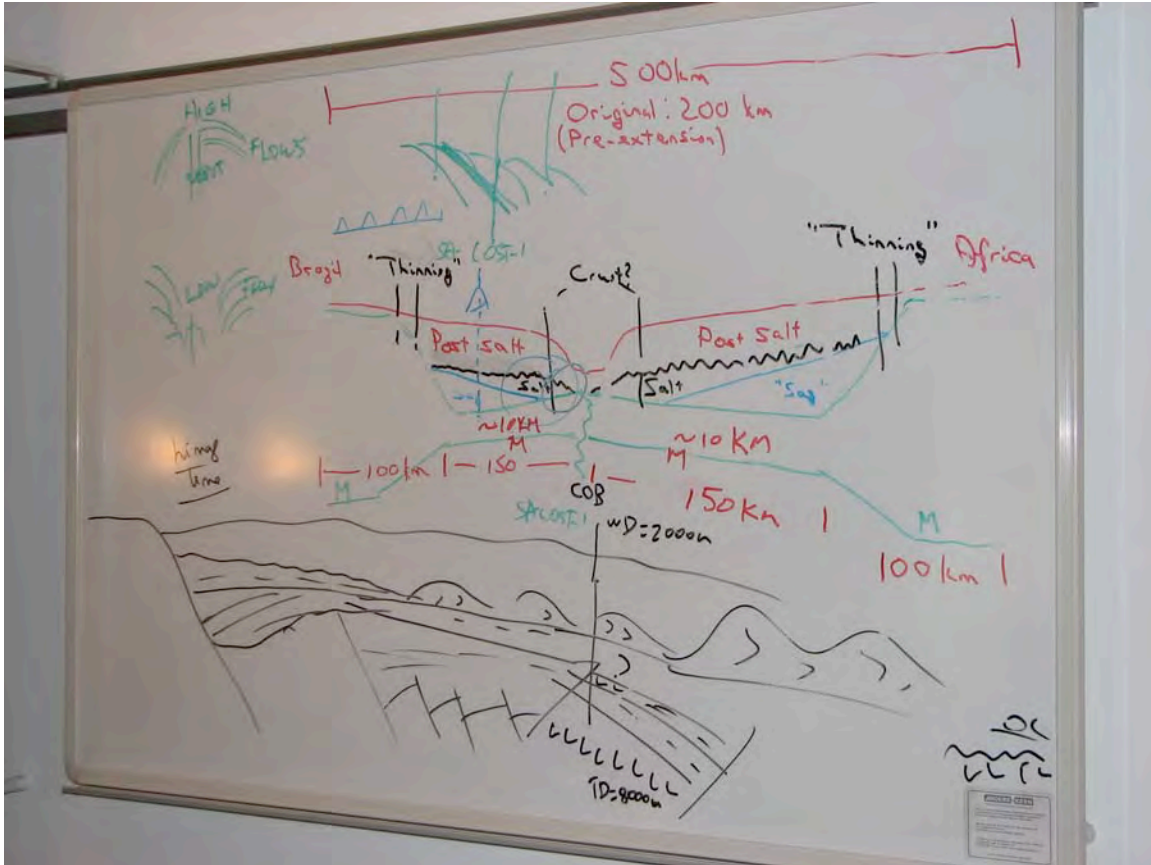 500km
Original: 200 km
(Pre-extension)
HIGH
FLOWS
LOW
Brazil
"Thinning"
Crust?
"Thinning"
Africa
Post Salt
Post Salt
Salt
Salt
"Sag"
~10KM
M
~10 KM
M
100km
150
M
COB
150km
M
100km
SACOST-1
WD=2000m
?
TD=8000m